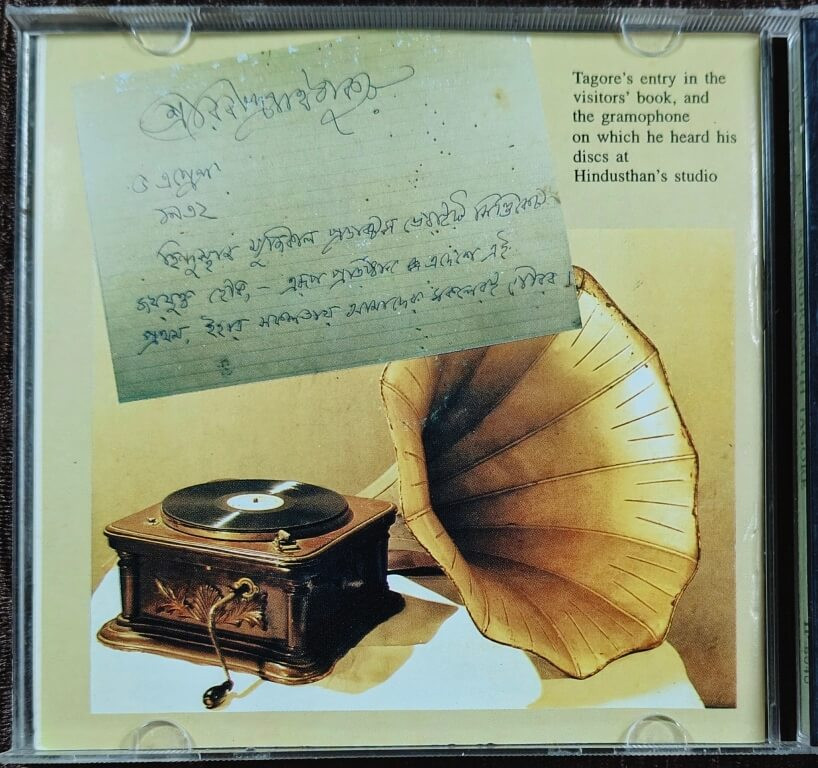 শ্রীরবীন্দ্রনাথ ঠাকুর
এপ্রেল
১৯৩২
হিন্দুস্থান ম্যুজিকাল প্রডাক্টস ভেরাইটি সিণ্ডিকেট
জয়যুক্ত হৌক,– এরূপ প্রতিষ্ঠান এদেশে এই
প্রথম, ইহার সফলতায় আমাদের সকলেরই গৌরব।
Tagore's entry in the
visitors' book, and
the gramophone
on which he heard his
discs at
Hindusthan's studio
TAGORE